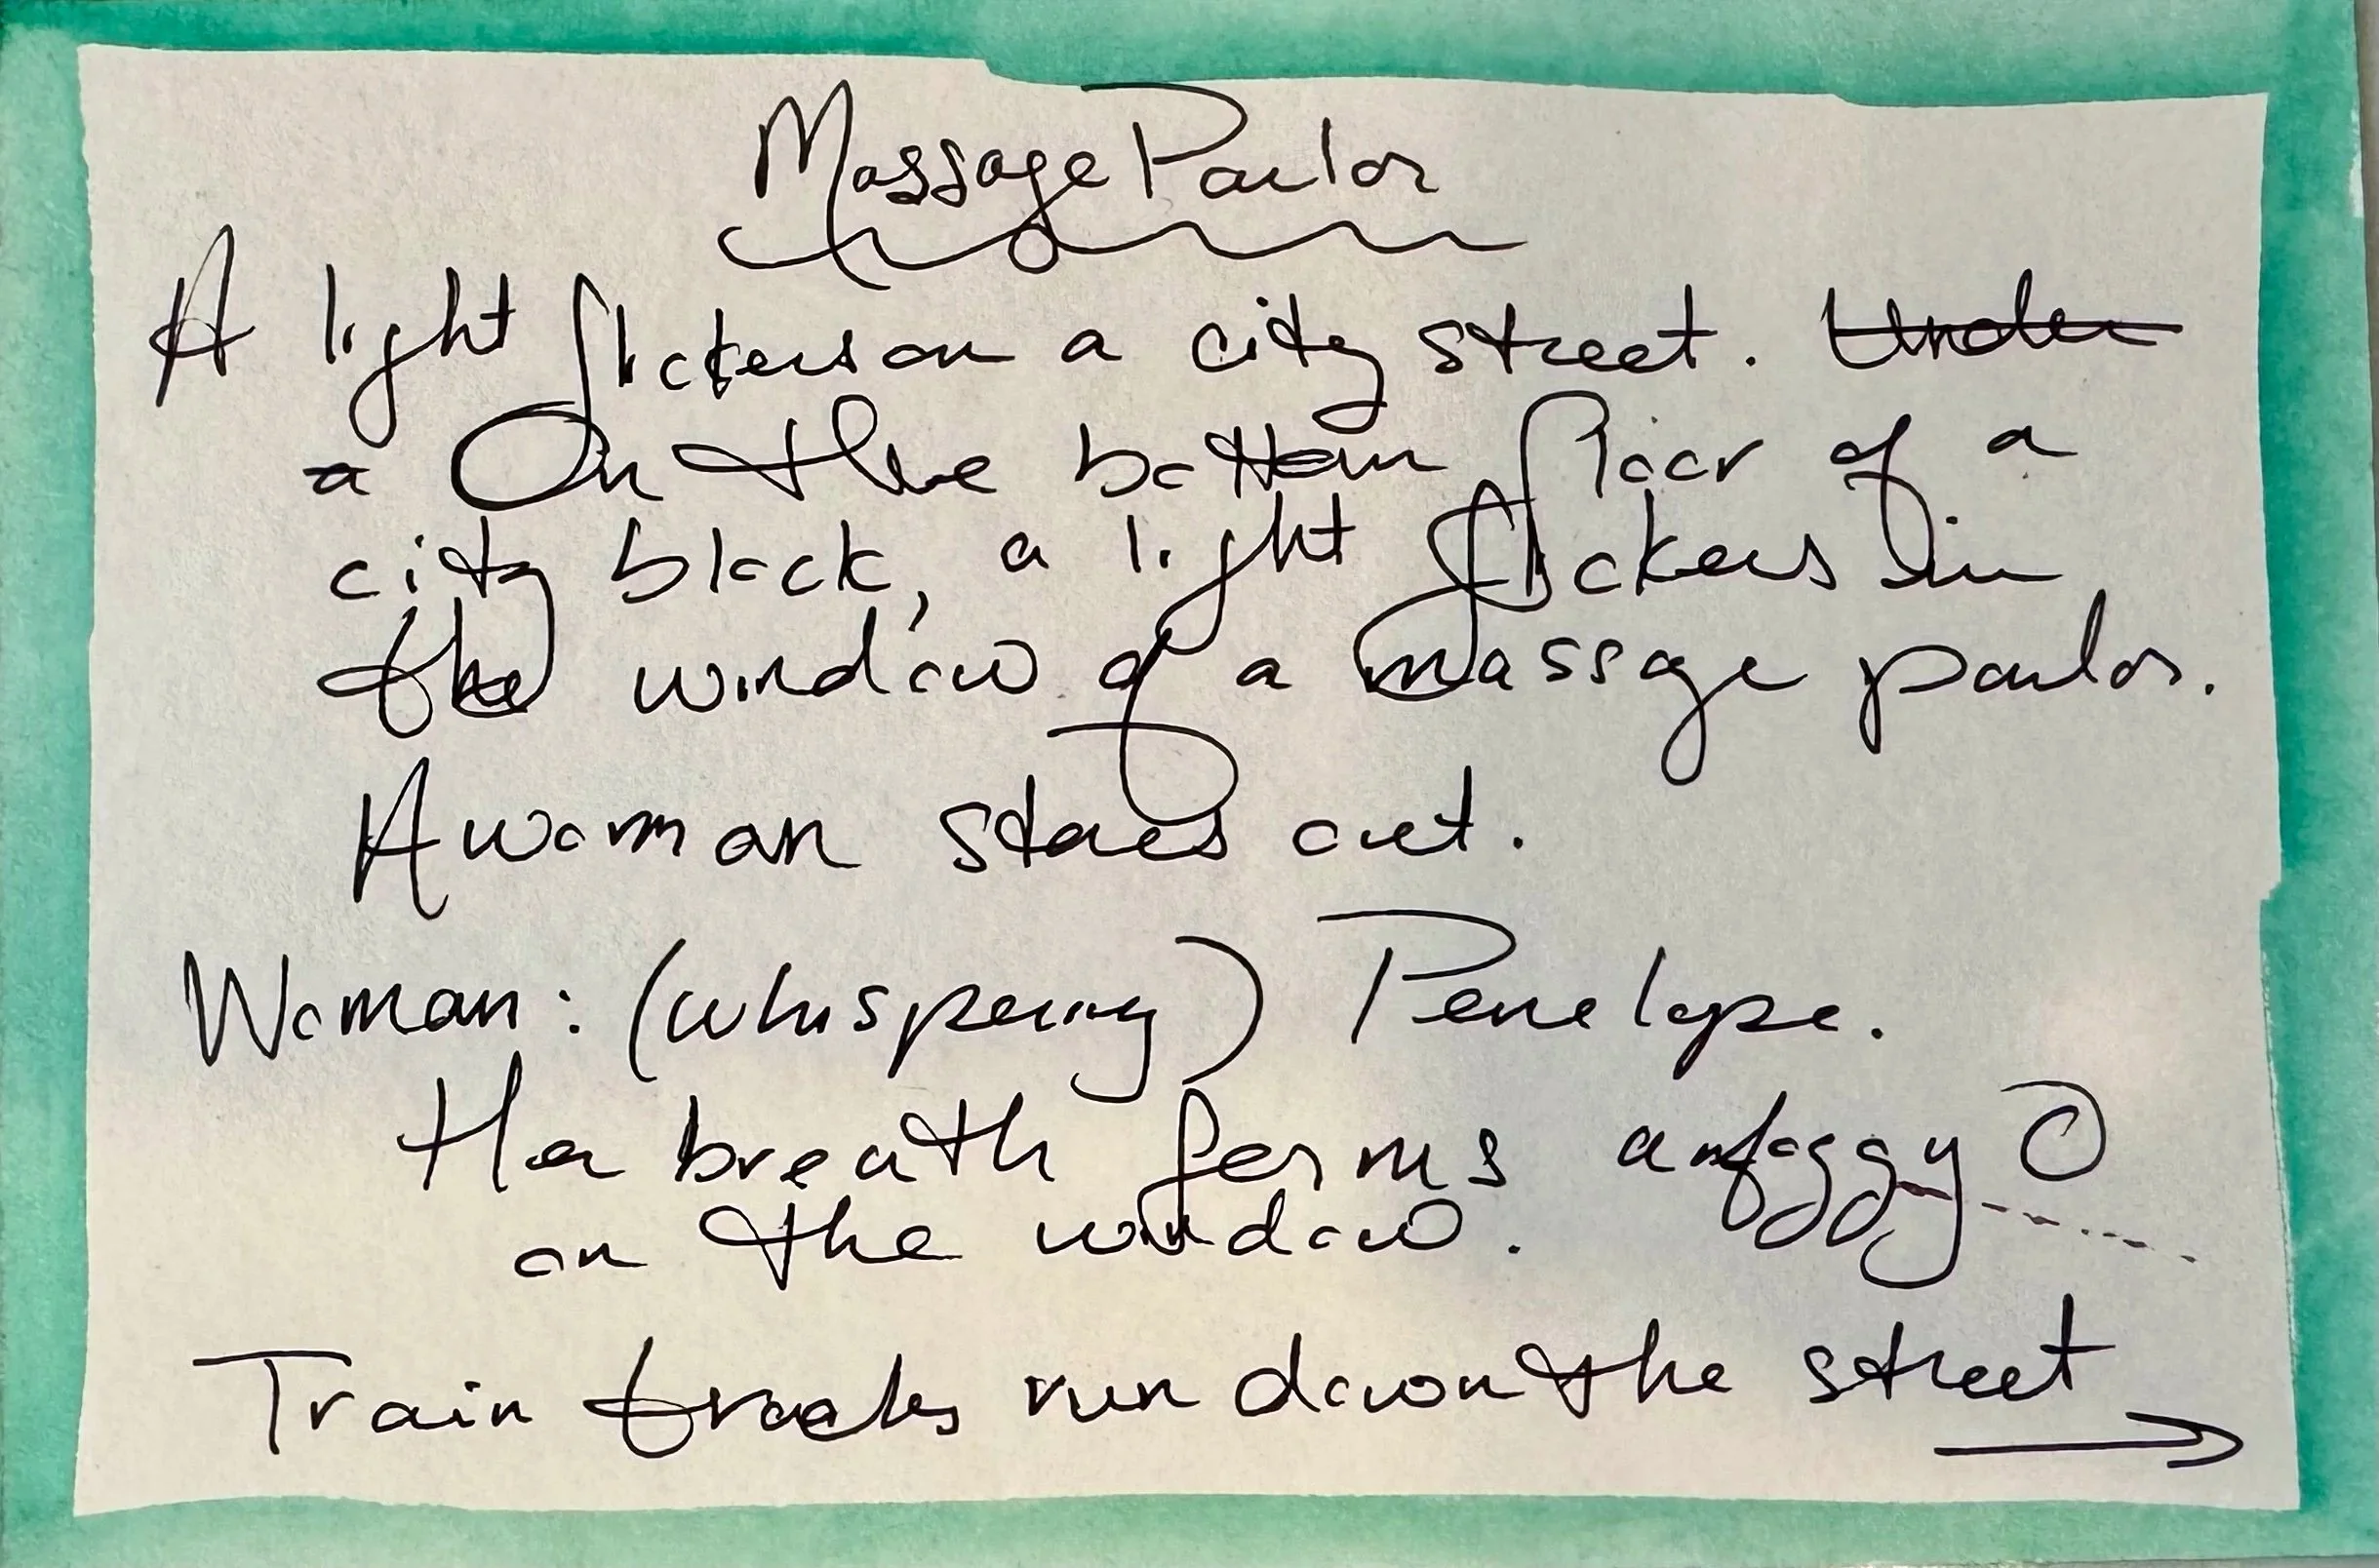 Massage Parlor
A light flickers on a city street. Under
a On the bottom floor of a
city block, a light flickers in
the window of a massage parlor.
A woman stares out.
Woman: (whispering) Penelope.
Her breath forms a foggy O
on the window.
Train tracks run down the street